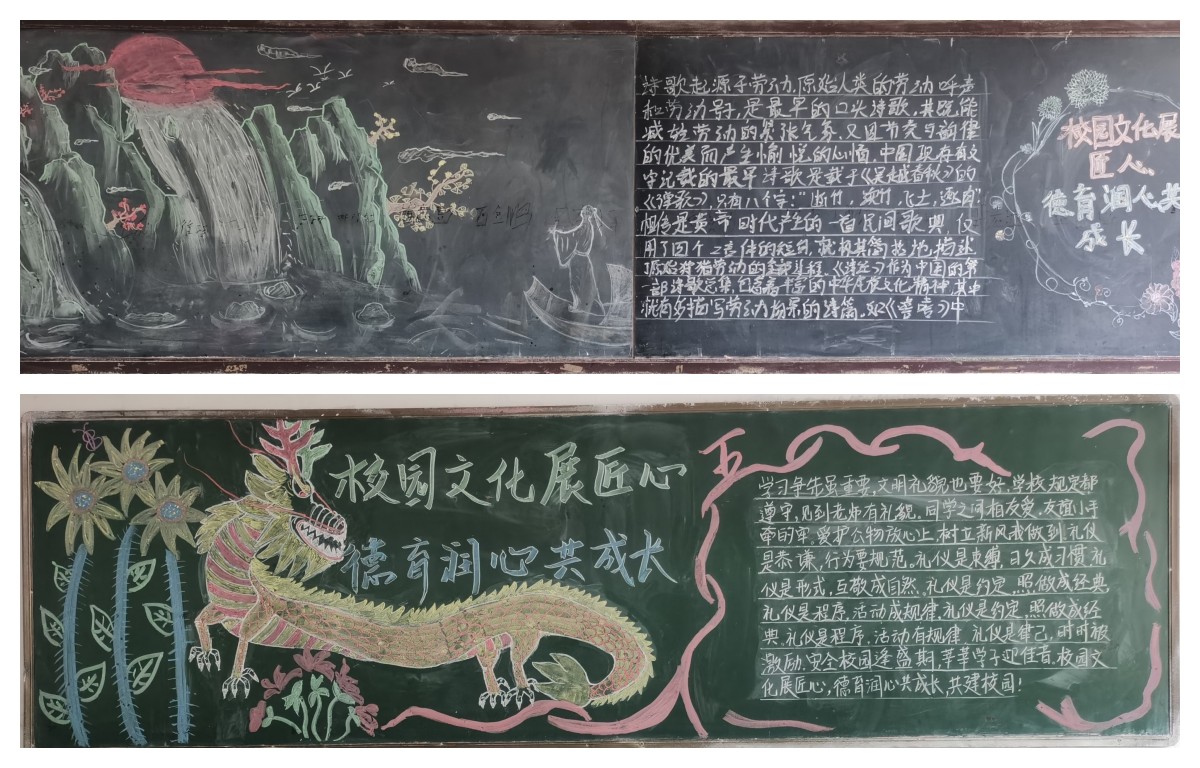 诗歌起源于劳动,原始人类的劳动呼声
和劳动号子,是最早的口头诗歌,其既能
减轻劳动的紧张气氛,又因节奏与韵律
的优美而产生愉悦的心情,中国现存有文
字记载的最早诗歌是载于《吴越春秋》的
《弹歌》,只有八个字:“断竹,续竹,飞土,逐宍”
相传是黄帝时代产生的一首民间歌典,仅
用了四个二言体的短句,就极其简
原始狩猎劳动的全部过程,《诗经》作为中国的第
一部诗歌总集,包含着丰富的中华民族文化精神,其中
就有多描写劳动场景的诗篇,如《芣苢》中
校园文化展
匠人
德育润心共
成长
校园文化展匠心
德育润心共成长
学习争先虽重要,文明礼貌也要好,学校规定都
遵守,见到老师有礼貌,同学之间相友爱,友谊小手
牵的牢,爱护公物放心上,树立新风我做到,礼仪
是恭谦,行为要规范,礼仪是束缚,日久成习惯,礼
仪是形式,互敬成自然,礼仪是约定,照做成经典,
礼仪是程序,活动成规律,礼仪是约定,照做成经
典,礼仪是程序,活动有规律,礼仪是律己,时时被
激励,安全校园逢盛期,莘莘学子迎佳音,校园文
化展匠心,德育润心共成长,共建校园!